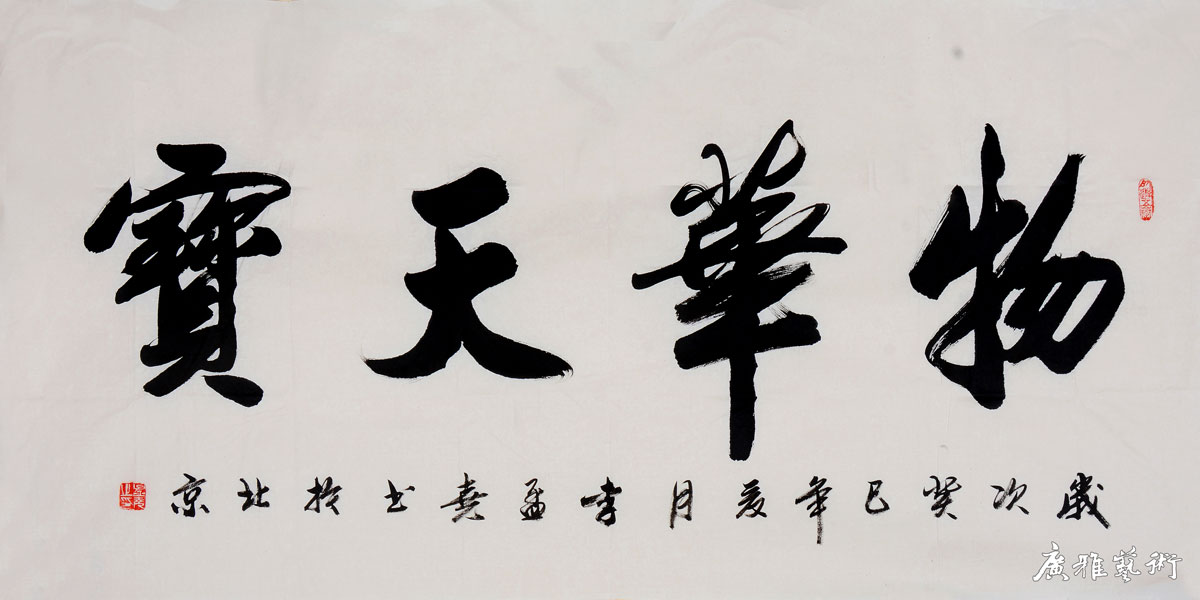 物華天寶
歲次癸巳年夏月李孟堯书於北京
廣雅藝術